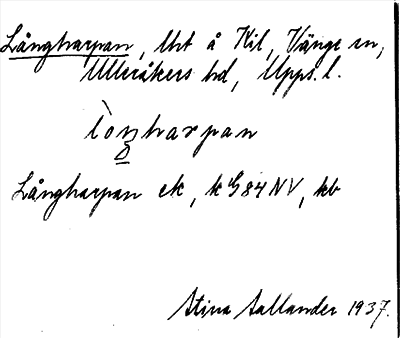 Långharpan, Urt å Kil, Vänge sn,
Ulleråkers hd, Upps. l.
lòŋharpan
Långharpan ek, k G 84 NV, kb
Stina Sallander 1937.